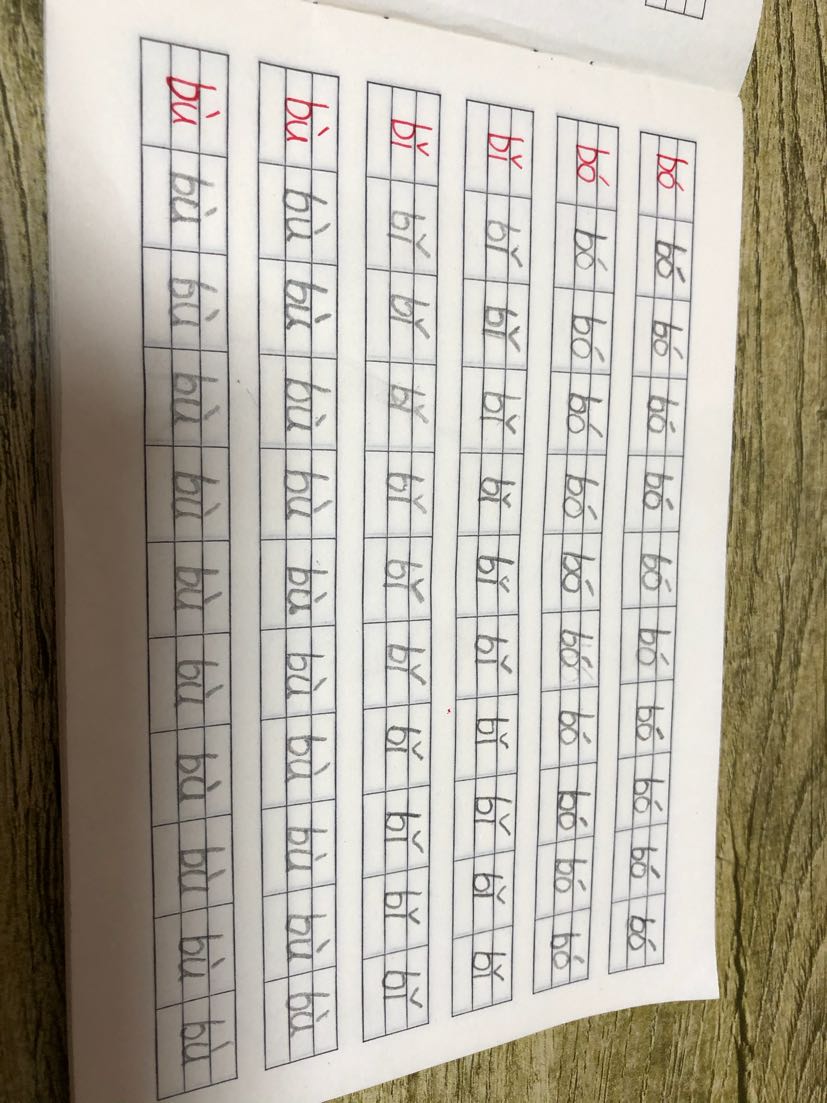 bó bó bó bó bó bó bó bó bó bó bó
bó bó bó bó bó bó bó bó bó bó bó
bǐ bǐ bǐ bǐ bǐ bǐ bǐ bǐ bǐ bǐ bǐ
bǐ bǐ bǐ bǐ bǐ bǐ bǐ bǐ bǐ bǐ bǐ
bù bù bù bù bù bù bù bù bù bù bù
bù bù bù bù bù bù bù bù bù bù bù